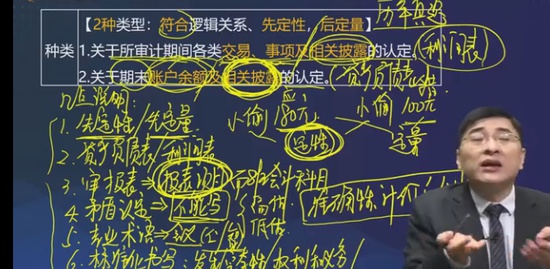 历年真题
【2种类型：符合逻辑关系、先定性，后定量】
种类
1.关于所审计期间各类交易、事项及相关披露的认定。
利润表
2.关于期末账户余额及相关披露的认定。
资产负债表
几点说明：
1. 先定性/先定量
小偷
180元
小偷
100元
定性
定量
2. 资产负债表/利润表
3. 审报表⇒报表项目
会计科目
准确性计价
4. 矛盾认定⇒
5. 专业术语⇒
6. 标准化书写：发生/存在/权利和义务/